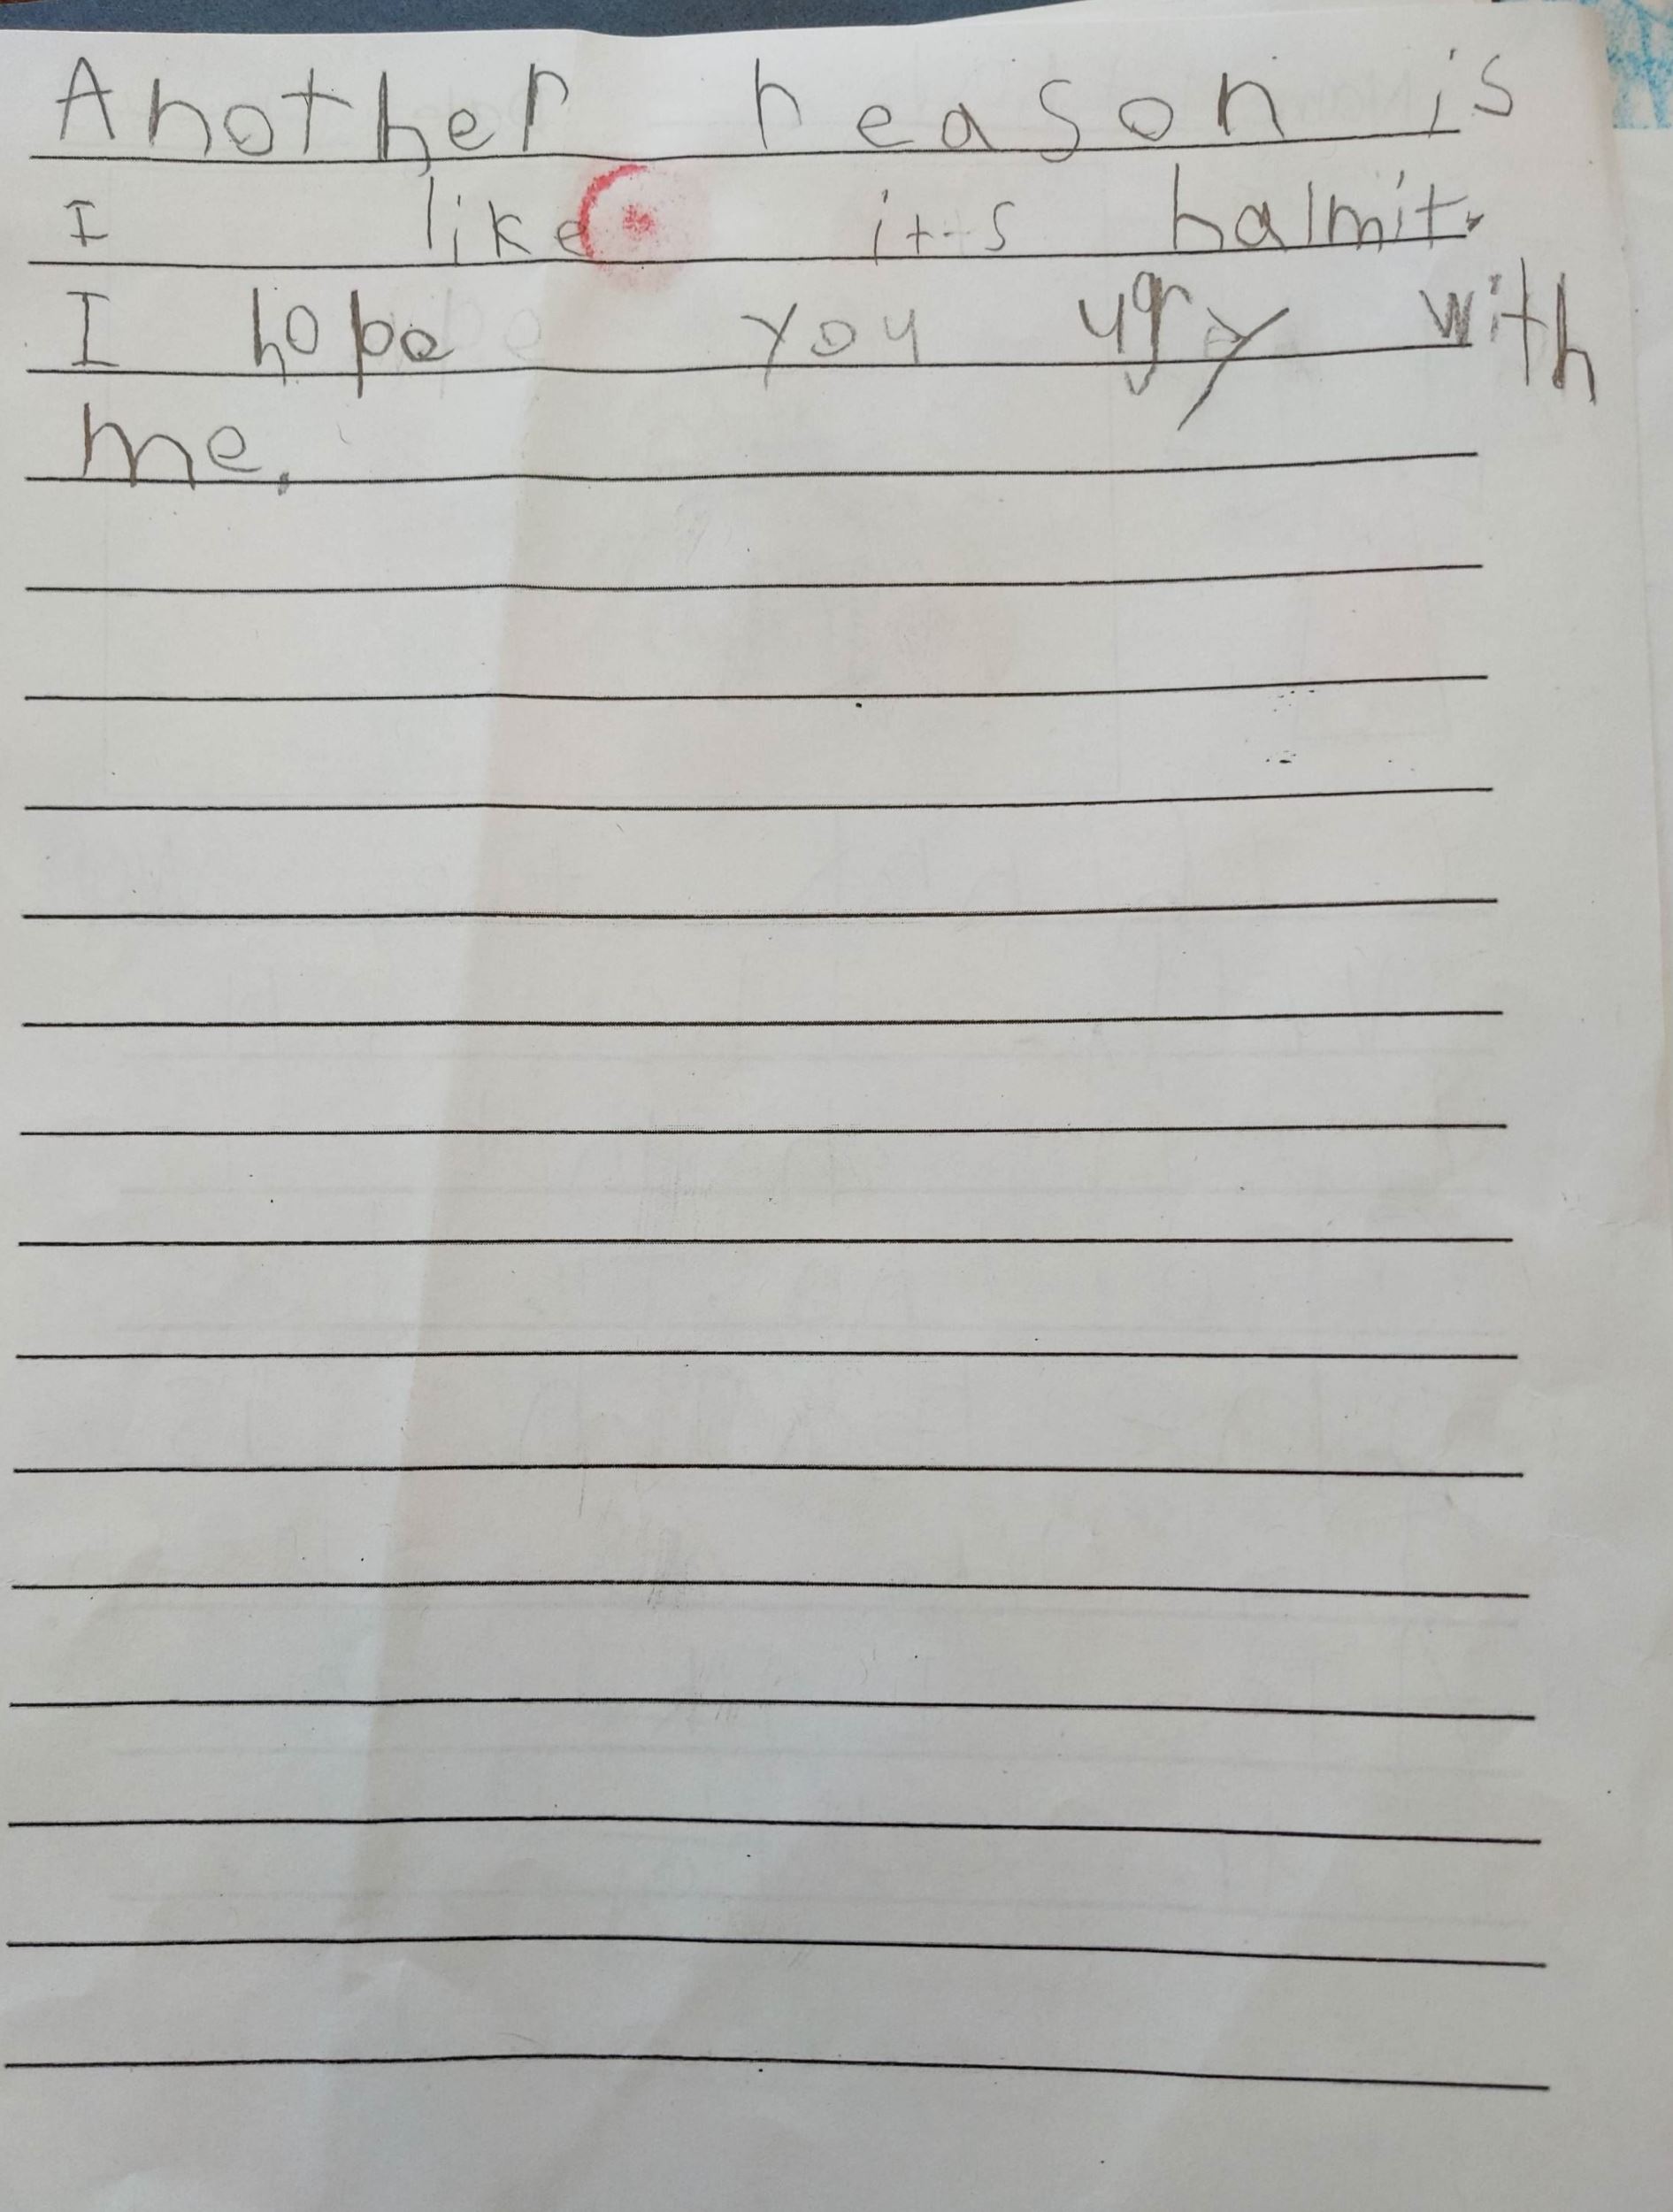 Another reason is
I like its halmit.
I hope you ugry with
me.